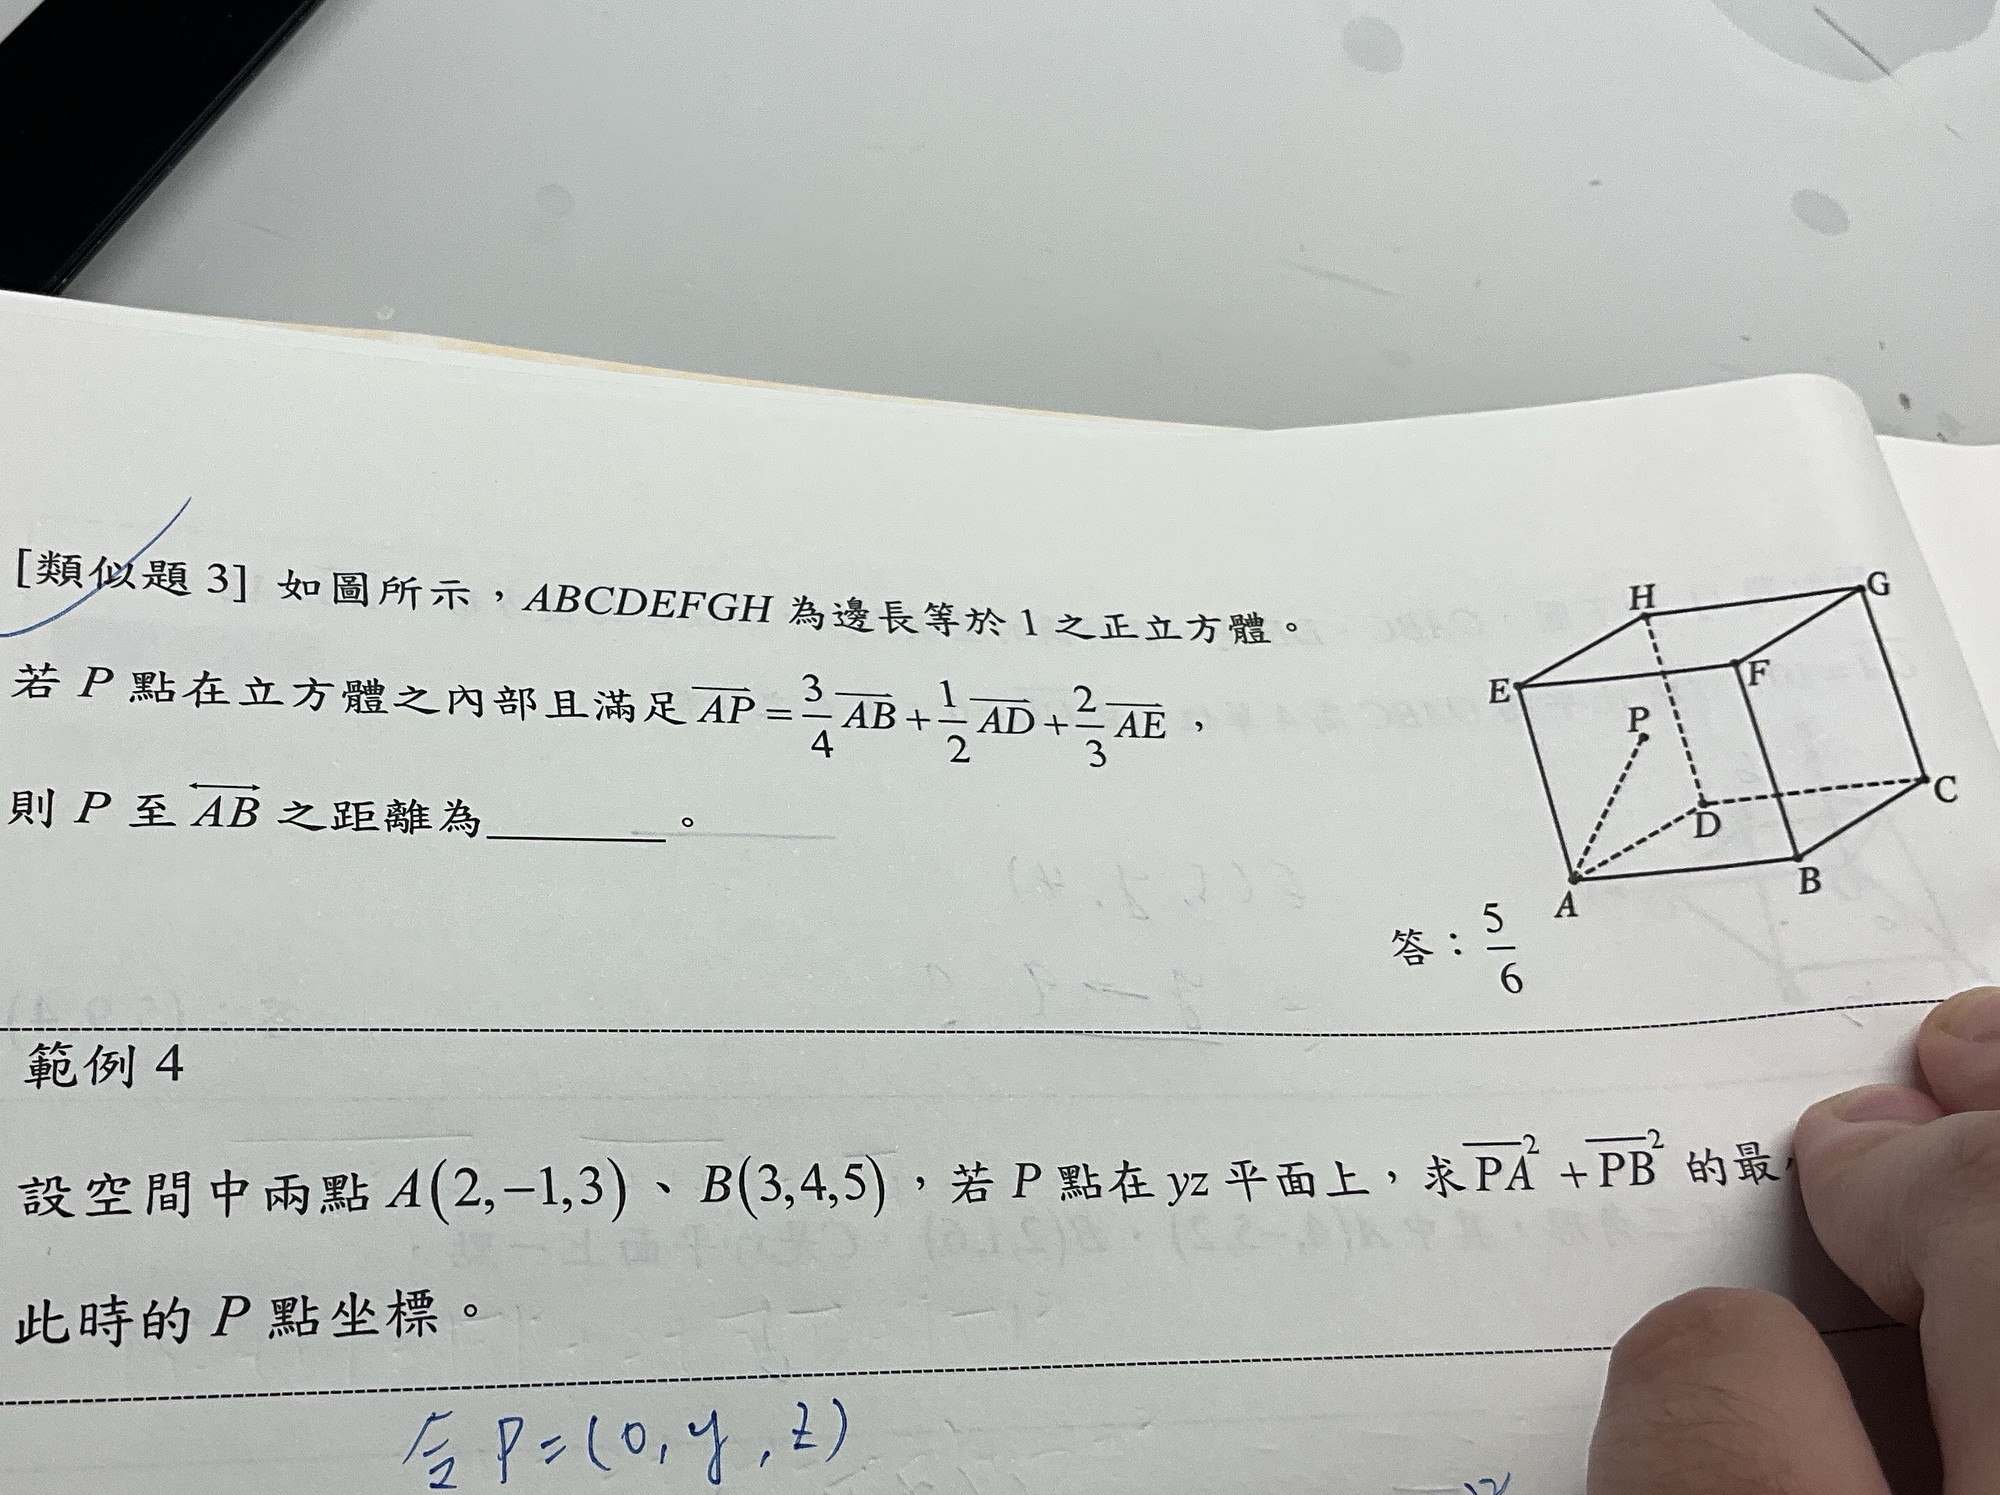 [類似題 3] 如圖所示，ABCDEFGH 為邊長等於 1 之正立方體。
若 P 點在立方體之內部且滿足 AP = 3/4 AB + 1/2 AD + 2/3 AE ，
則 P 至 AB 之距離為______。
H
G
E
F
P
D
C
A
B
答：5/6
範例 4
設空間中兩點 A(2,−1,3)、B(3,4,5)，若 P 點在 yz 平面上，求 PA² + PB² 的最
此時的 P 點坐標。
令 P=(0, y, z)